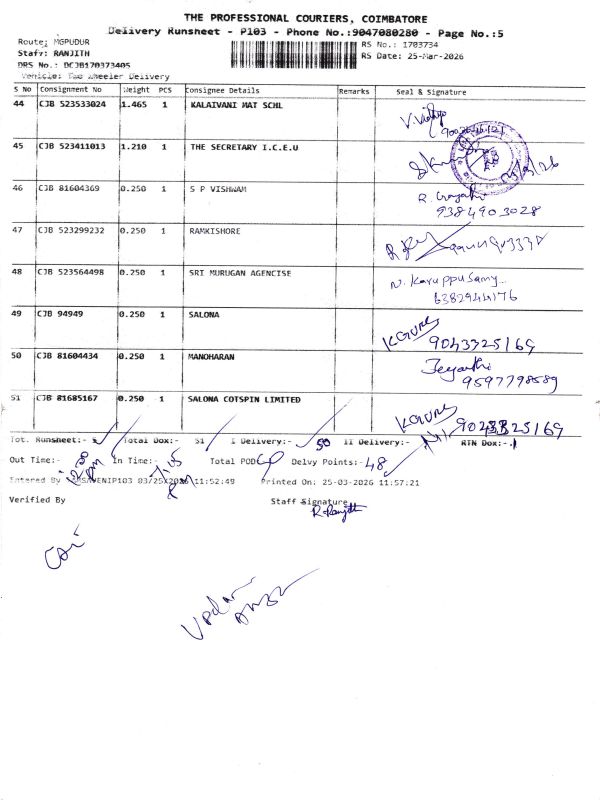 THE PROFESSIONAL COURIERS, COIMBATORE
Delivery Runsheet - P103 - Phone No.:9047080280 - Page No.:5
Route: MGPUDUR
Staff: RANJITH
DRS No.: DCJB170373405
Vehicle: Two Wheeler Delivery
RS No.: 1703734
RS Date: 25-Mar-2026
S No Consignment No Weight PCS Consignee Details Remarks Seal & Signature
44 CJB 523533024 1.465 1 KALAIVANI MAT SCHL
45 CJB 523411013 1.210 1 THE SECRETARY I.C.E.U
46 CJB 81604369 0.250 1 S P VISHWAM R. Gayathri
9384903028
47 CJB 523299232 0.250 1 RAMKISHORE
48 CJB 523564498 0.250 1 SRI MURUGAN AGENCISE N. Karuppusamy
6382944176
49 CJB 94949 0.250 1 SALONA KGURU 9043325169
50 CJB 81604434 0.250 1 MANOHARAN Jeyanthi
9597798589
51 CJB 81685167 0.250 1 SALONA COTSPIN LIMITED KGURU
Tot. Runsheet:- Total Dox:- 51 I Delivery:- 50 II Delivery:- RTN Dox:- 1
Out Time:- In Time:- Total POD Delvy Points:- 48
Entered By 03/25/2026 11:52:49 Printed On: 25-03-2026 11:57:21
Verified By Staff Signature
R. Ranjith